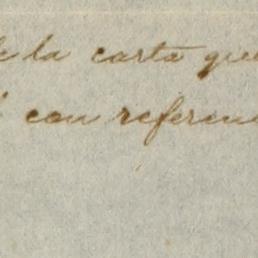 de la carta que
con referen